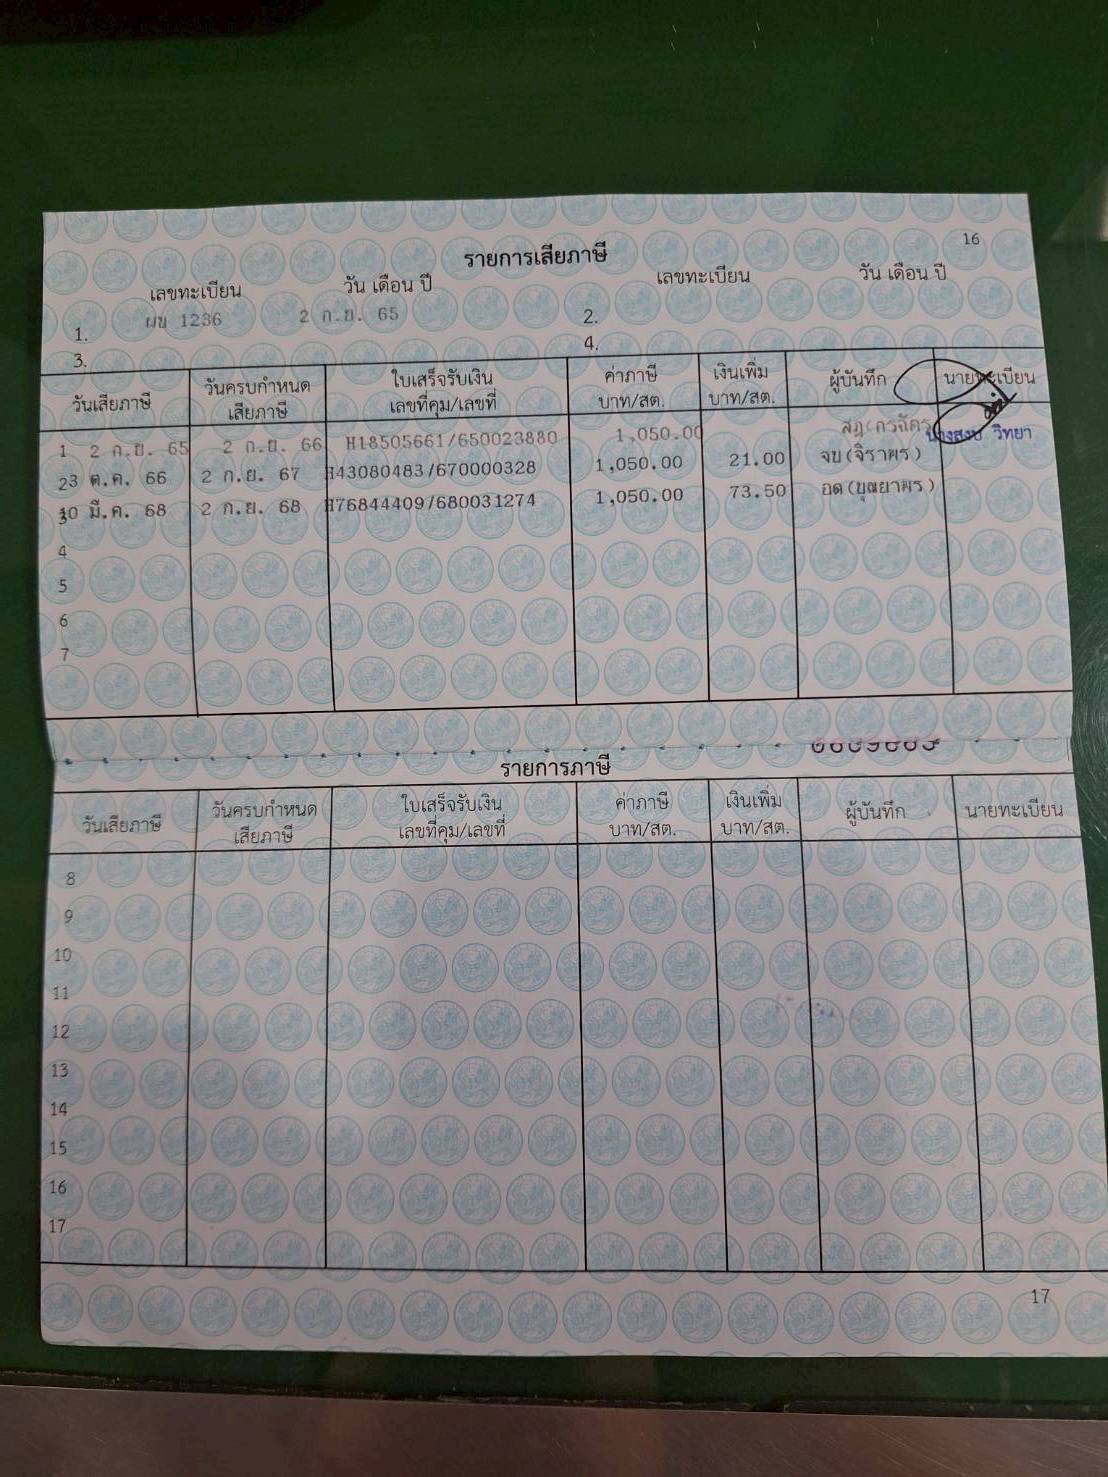 16
รายการเสียภาษี
เลขทะเบียน วัน เดือน ปี เลขทะเบียน วัน เดือน ปี
1. ผข 1236 2 ก.ย. 65 2.
3. 4.
วันเสียภาษี วันครบกำหนดเสียภาษี ใบเสร็จรับเงิน เลขที่คุม/เลขที่ ค่าภาษี บาท/สต. เงินเพิ่ม บาท/สต. ผู้บันทึก นายทะเบียน
1 2 ก.ย. 65 2 ก.ย. 66 H18505661/650023880 1,050.00
นางสงบ วิทยา
2 3 ต.ค. 66 2 ก.ย. 67 H43080483/670000328 1,050.00 21.00 จบ(จิราพร)
3 10 มี.ค. 68 2 ก.ย. 68 H76844409/680031274 1,050.00 73.50 อด(บุณยาพร)
4
5
6
7
รายการภาษี
วันเสียภาษี วันครบกำหนดเสียภาษี ใบเสร็จรับเงิน เลขที่คุม/เลขที่ ค่าภาษี บาท/สต. เงินเพิ่ม บาท/สต. ผู้บันทึก นายทะเบียน
8
9
10
11
12
13
14
15
16
17
17